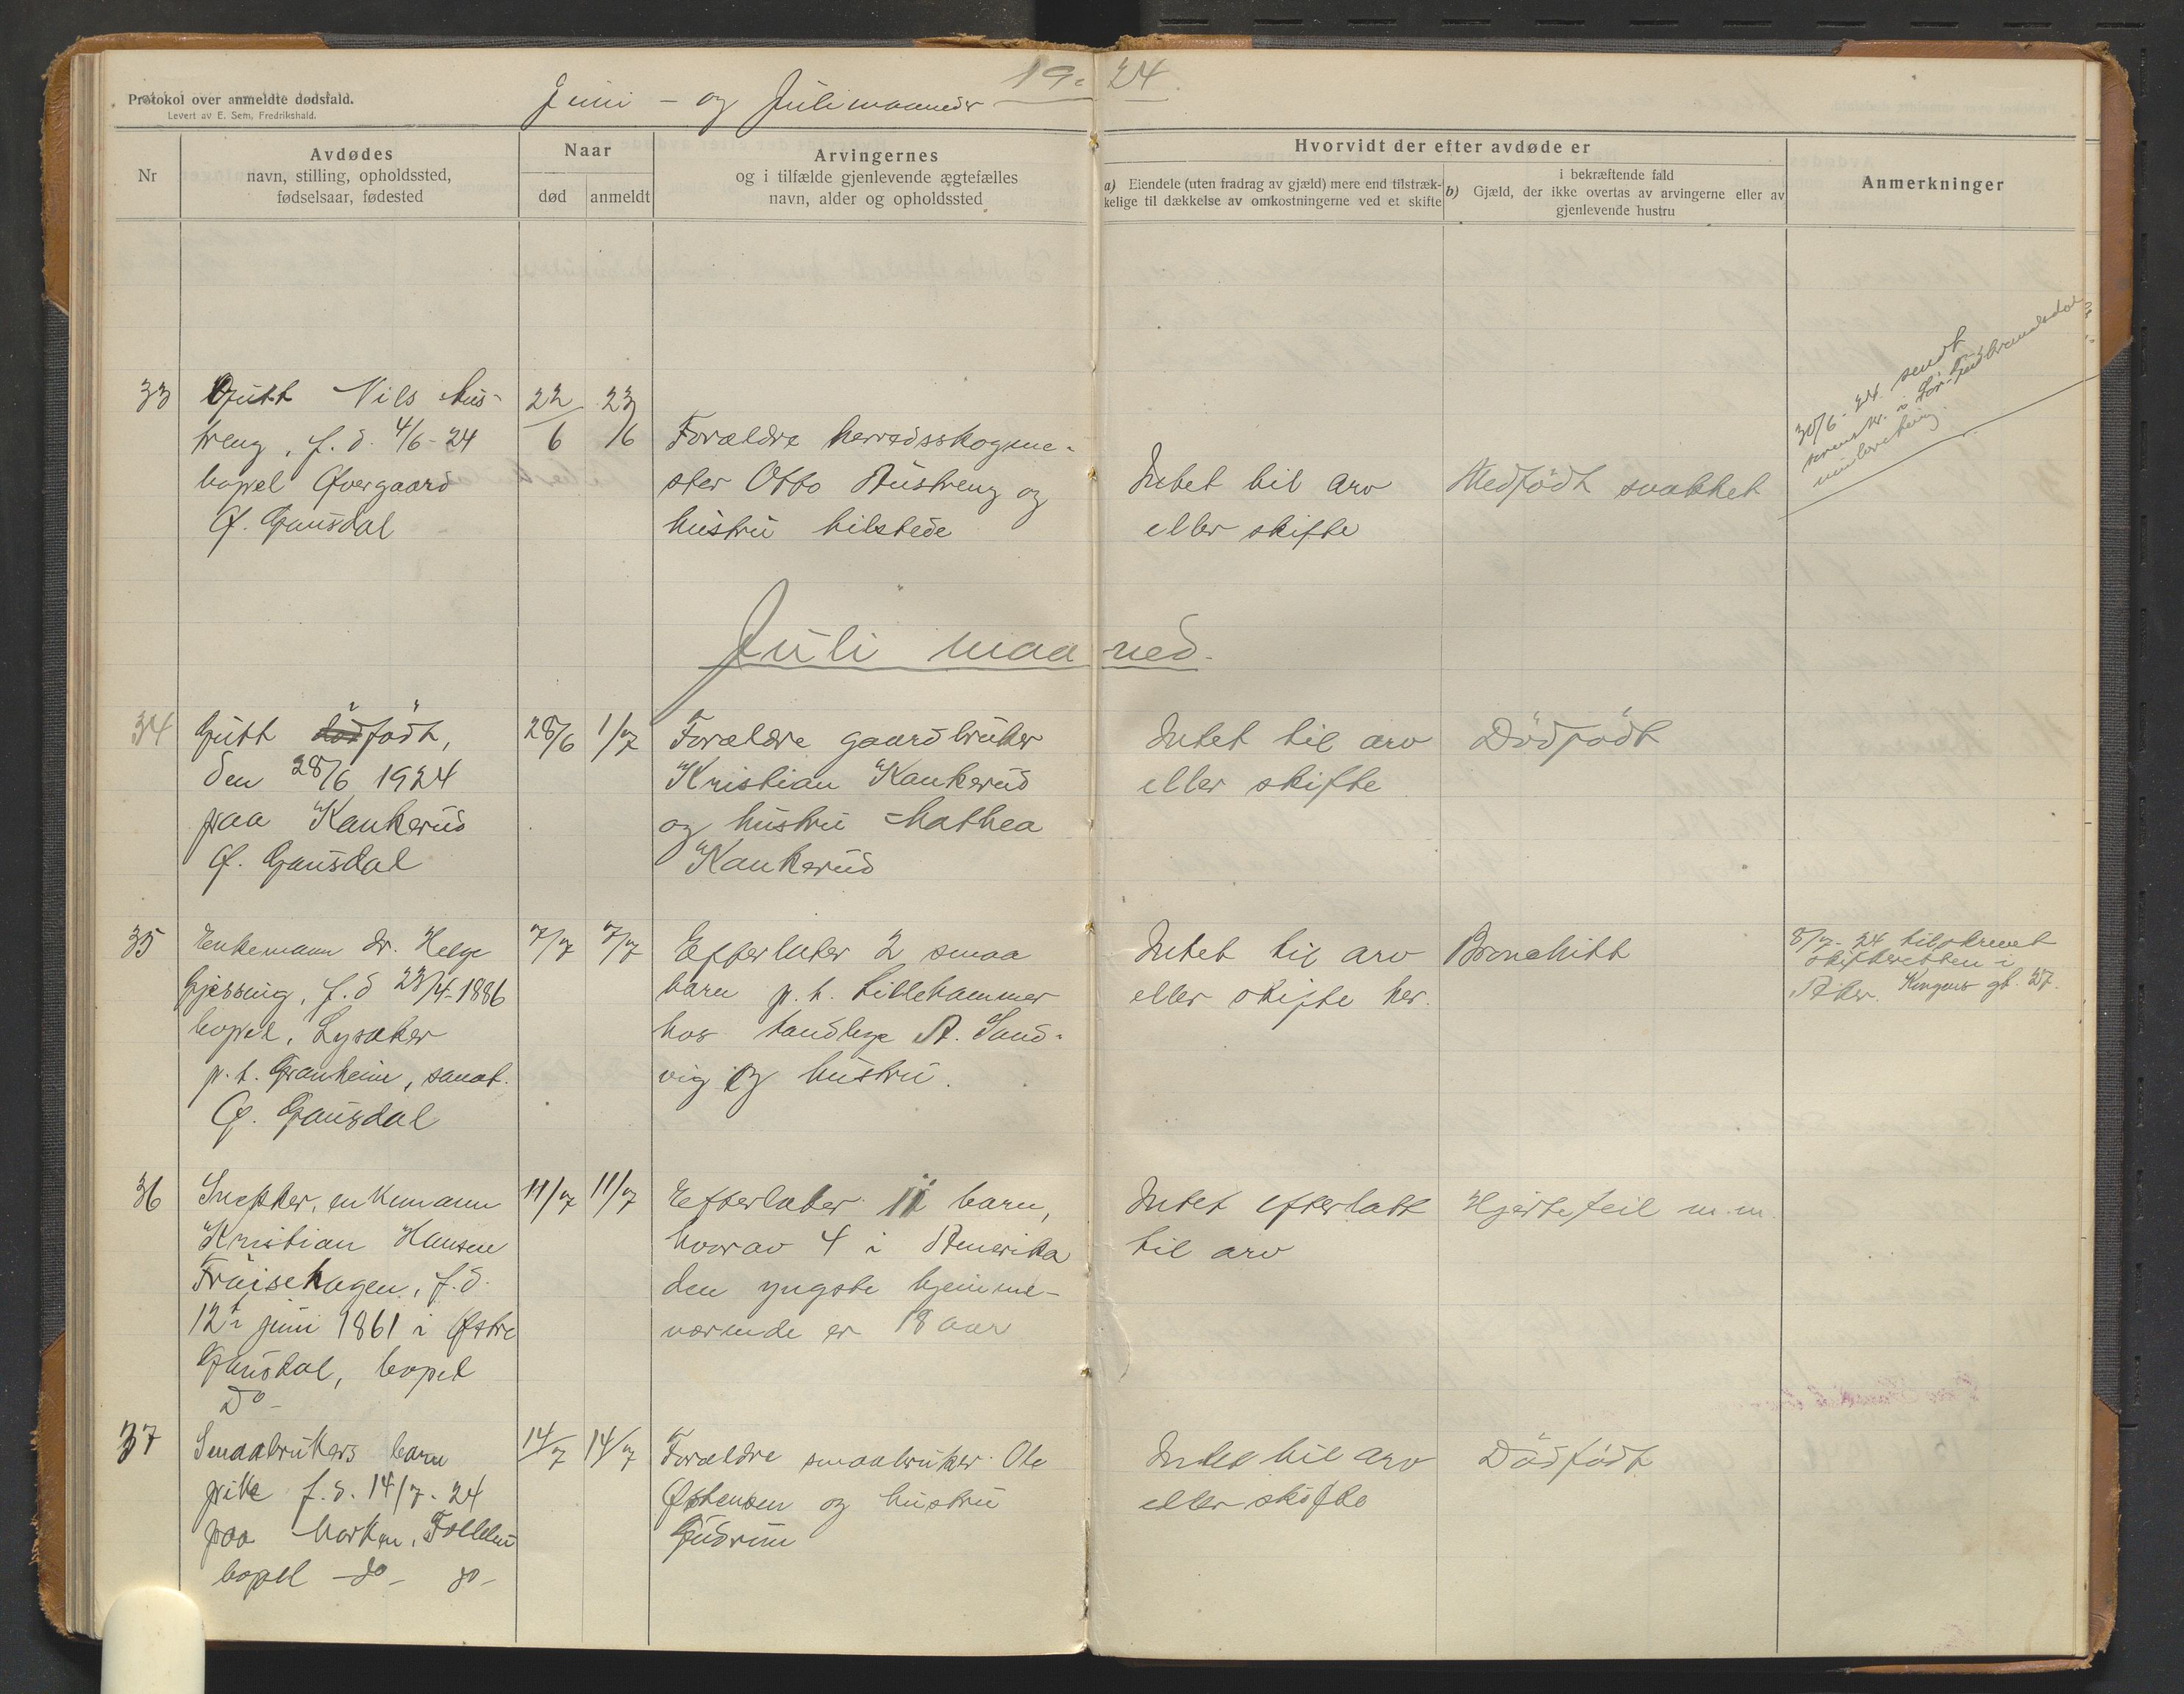 Juni - og Juli maaneder 19 24
Protokol over anmeldte dødsfald.
Levert av E. Sem, Fredrikshald.
Nr
Avdødes
navn, stilling, opholdssted,
fødselsaar, fødested
Naar
død
anmeldt
Arvingernes
og i tilfælde gjenlevende ægtefælles
navn, alder og opholdssted
Hvorvidt der efter avdøde er
a) Eiendele (uten fradrag av gjæld) mere end tilstræk-
kelige til dækkelse av omkostningerne ved et skifte
i bekræftende fald
b) Gjæld, der ikke overtas av arvingerne eller av
gjenlevende hustru
Anmerkninger
33
Gutt Nils Aus-
treng, f. d. 4/6-24
bopel Øvergaard
Ø. Gausdal
22/6
23/6
Forældre herredsskogme-
ster Otto Austreng og
hustru tilstede
Intet til arv
eller skifte
Medfødt svakhet
30/6-24 sendt
Juli maaned.
34
Gutt dødfødt,
den 28/6 1924
paa Kankerud
Ø. Gausdal
28/6
1/7
Forældre gaardbruker
Kristian Kankerud
og hustru Mathea
Kankerud
Intet til arv
eller skifte
Dødfødt
35
Enkemann dr. Helge
Gjessing, f. d 23/4-1886
bopel, Lysaker
p. t. Granheim, sanat.
Ø. Gausdal
7/7
7/7
Efterlater 2 smaa
barn p. t. Lillehammer
hos tandlege A. Sand-
vig og hustru.
Intet til arv
eller skifte her.
Bronchitt
8/7-24 tilskrevet
skifteretten i
Aker. Kongens gt. 27.
36
Snekker, enkemann
Kristian Hansen
Fruisehagen, f. d.
12te juni 1861 i Østre
Gausdal, bopel
do-
11/7
11/7
Efterlater 11 barn,
hvorav 4 i Amerika
den yngste hjemme-
værende er 18 aar
Intet efterlatt
til arv
Hjertefeil m.m.
37
Smaabrukers barn
pike f. d. 14/7-24
paa Morken, Follebu
bopel -do- do-
14/7
14/7
Forældre smaabruker Ole
Østensen og hustru
Gudrun
Intet til arv
eller skifte
Dødfødt